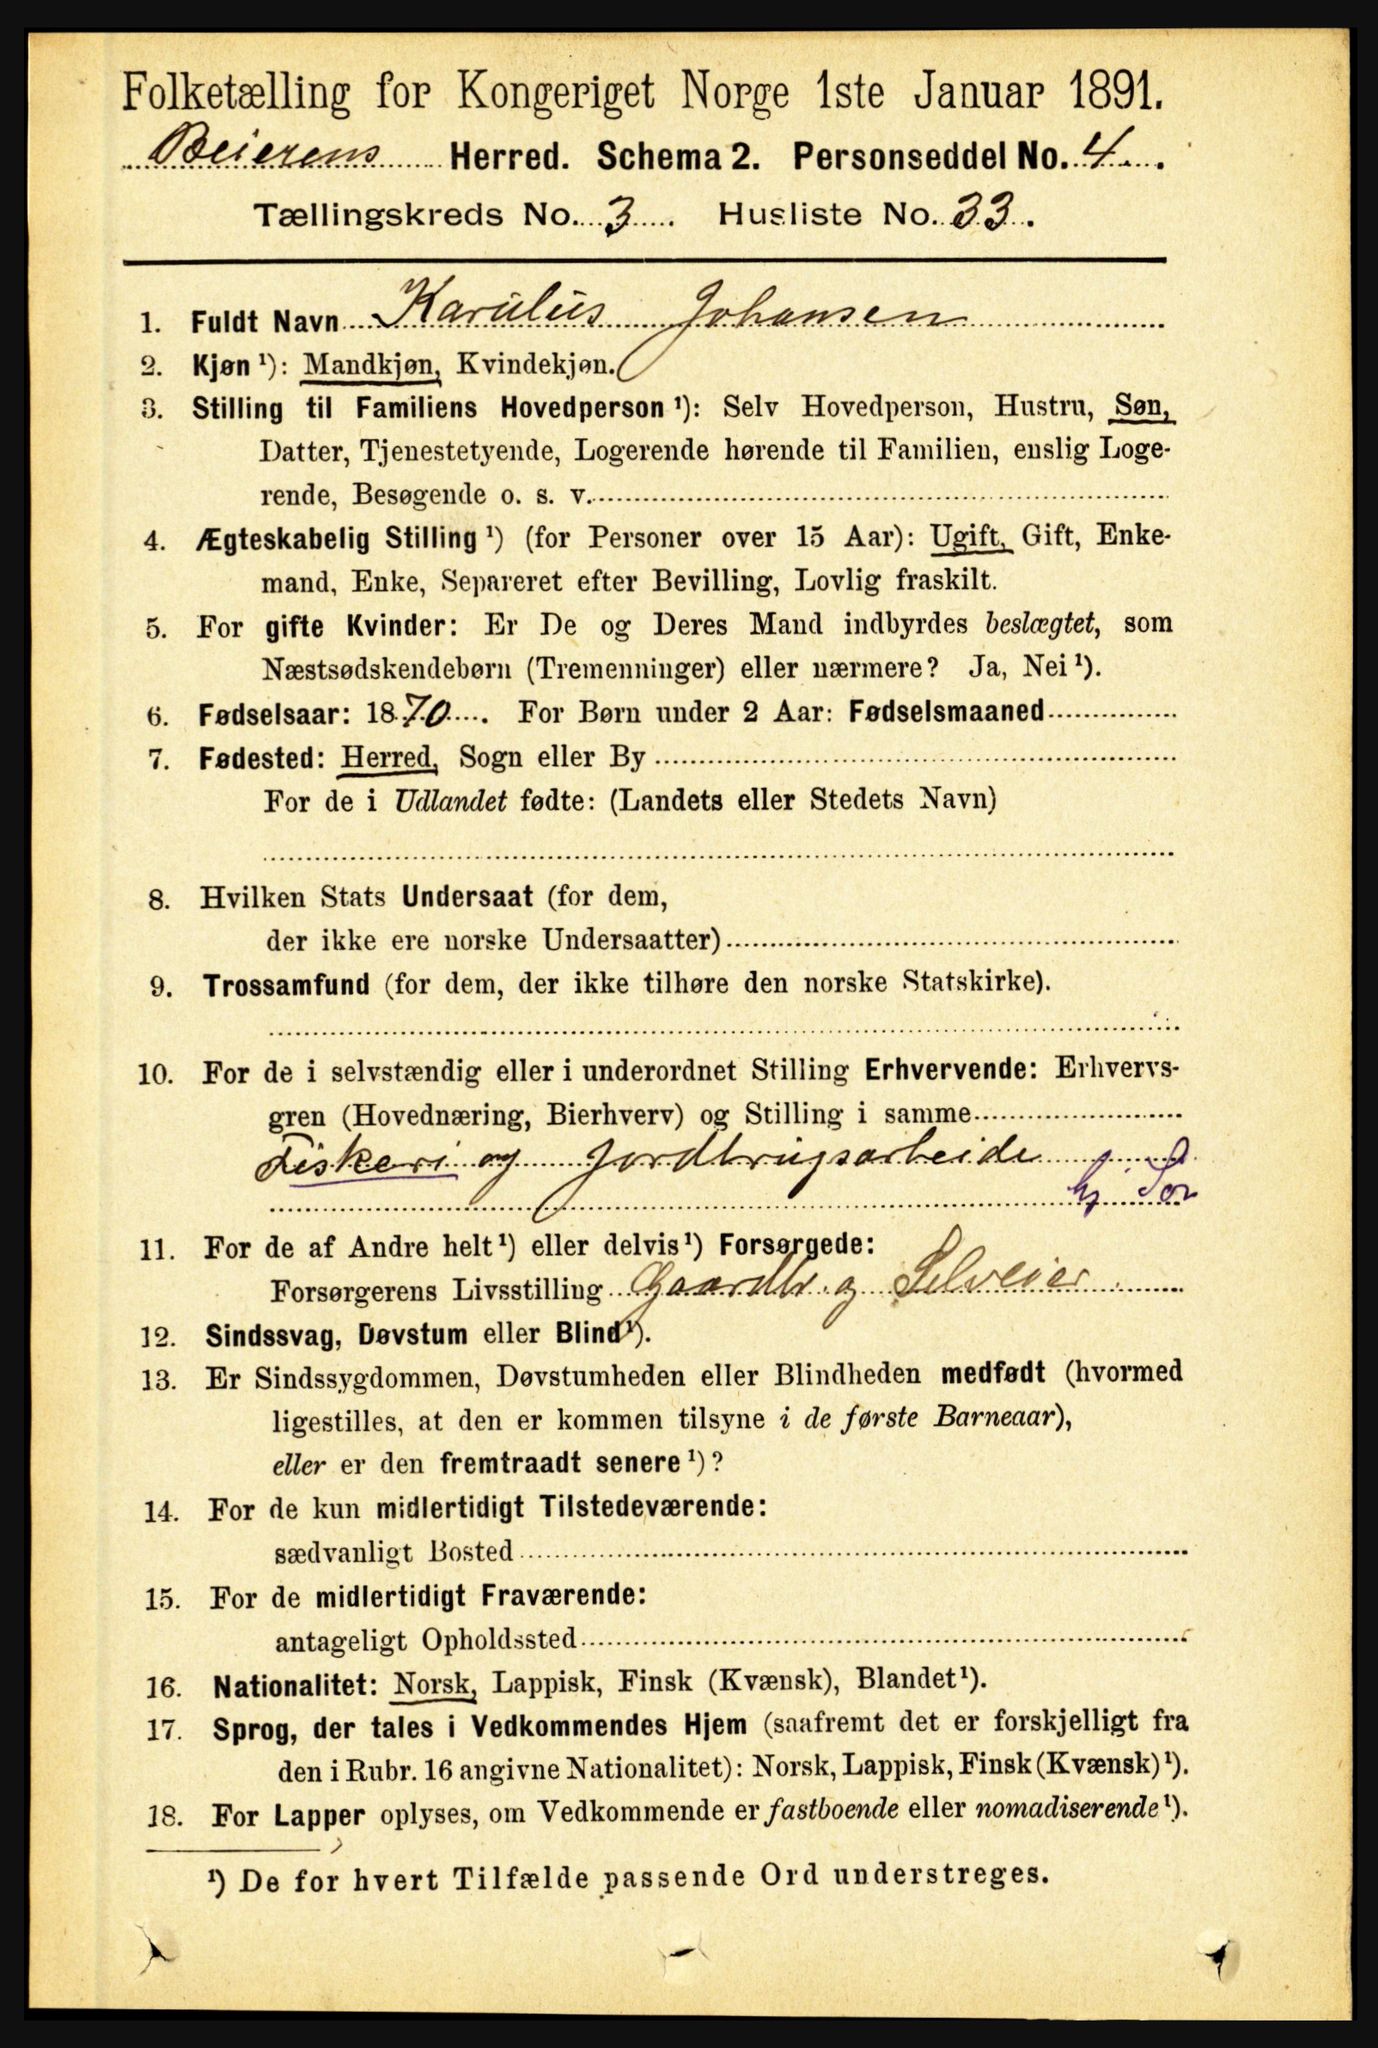 Folketælling for Kongeriget Norge 1ste Januar 1891.
Beierens Herred. Schema 2. Personseddel No. 4.
Tællingskreds No. 3. Husliste No. 33.
1. Fuldt Navn Karulius Johansen
2. Kjøn ¹): Mandkjøn, Kvindekjøn.
3. Stilling til Familiens Hovedperson ¹): Selv Hovedperson, Hustru, Søn,
Datter, Tjenestetyende, Logerende hørende til Familien, enslig Loge-
rende, Besøgende o. s. v.
4. Ægteskabelig Stilling ¹) (for Personer over 15 Aar): Ugift, Gift, Enke-
mand, Enke, Separeret efter Bevilling, Lovlig fraskilt.
5. For gifte Kvinder: Er De og Deres Mand indbyrdes beslægtet, som
Næstsødskendebørn (Tremenninger) eller nærmere? Ja, Nei ¹).
6. Fødselsaar: 1870. For Børn under 2 Aar: Fødselsmaaned
7. Fødested: Herred, Sogn eller By
For de i Udlandet fødte: (Landets eller Stedets Navn)
8. Hvilken Stats Undersaat (for dem,
der ikke ere norske Undersaatter)
9. Trossamfund (for dem, der ikke tilhøre den norske Statskirke).
10. For de i selvstændig eller i underordnet Stilling Erhvervende: Erhvervs-
gren (Hovednæring, Bierhverv) og Stilling i samme
Fiskeri og Jordbrugsarbeide
hj. Søn
11. For de af Andre helt ¹) eller delvis ¹) Forsørgede:
Forsørgerens Livsstilling Gaardbr. og Selveier
12. Sindssvag, Døvstum eller Blind ¹).
13. Er Sindssygdommen, Døvstumheden eller Blindheden medfødt (hvormed
ligestilles, at den er kommen tilsyne i de første Barneaar),
eller er den fremtraadt senere ¹)?
14. For de kun midlertidigt Tilstedeværende:
sædvanligt Bosted
15. For de midlertidigt Fraværende:
antageligt Opholdssted
16. Nationalitet: Norsk, Lappisk, Finsk (Kvænsk), Blandet ¹).
17. Sprog, der tales i Vedkommendes Hjem (saafremt det er forskjelligt fra
den i Rubr. 16 angivne Nationalitet): Norsk, Lappisk, Finsk (Kvænsk) ¹).
18. For Lapper oplyses, om Vedkommende er fastboende eller nomadiserende ¹).
¹) De for hvert Tilfælde passende Ord understreges.